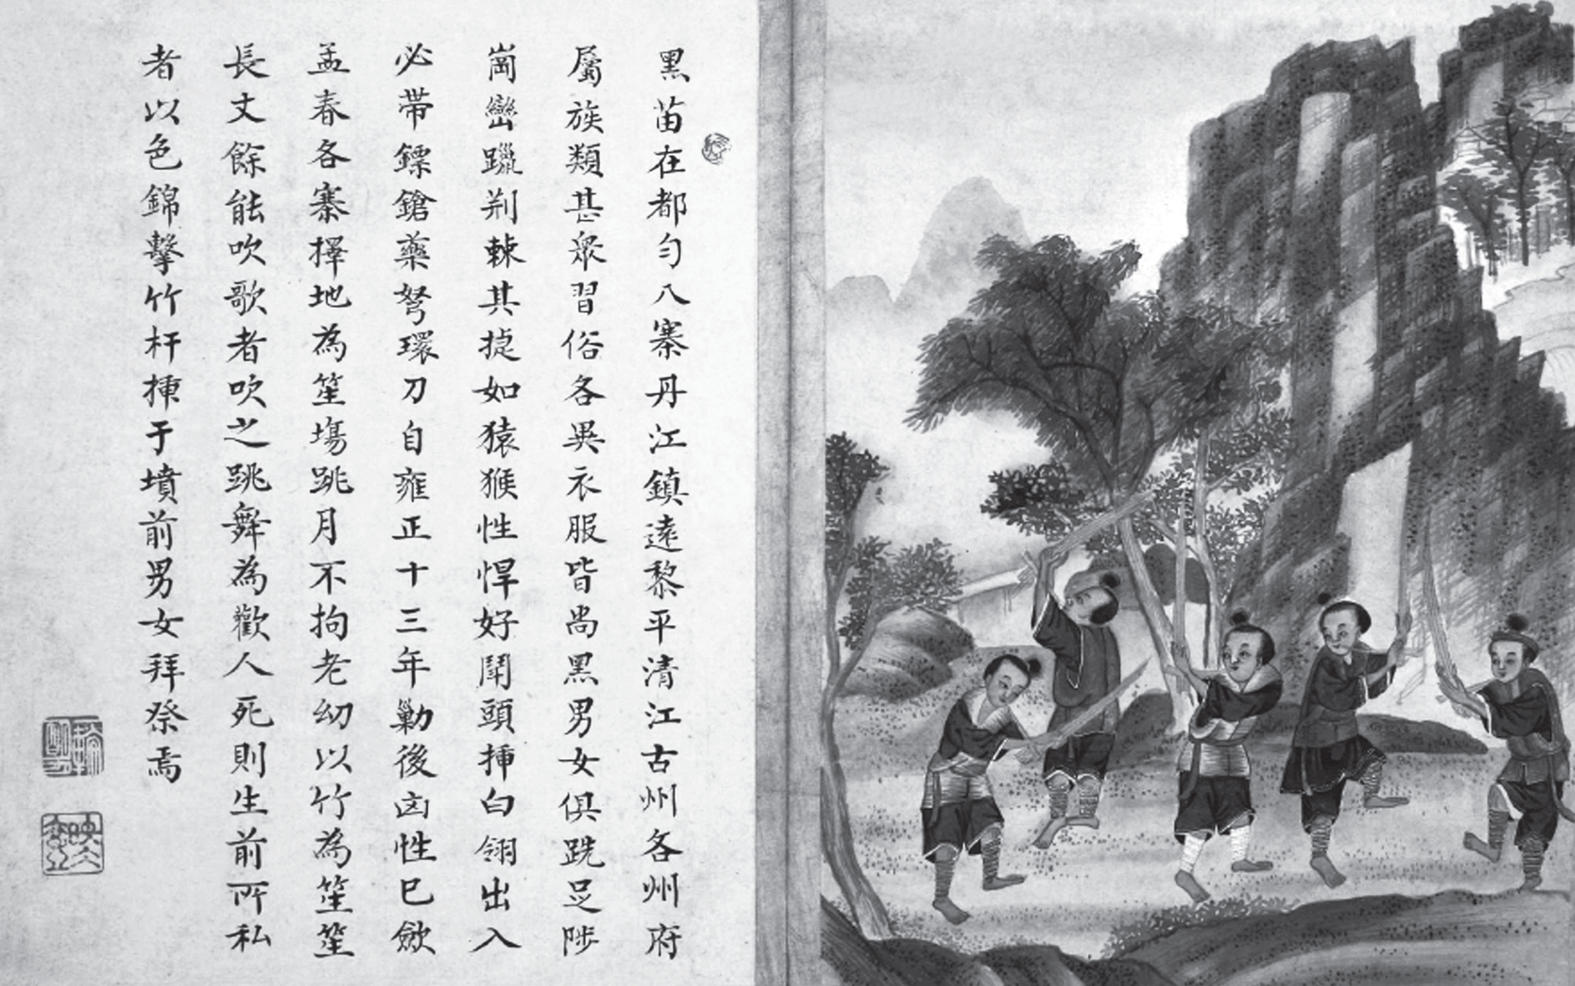 黑苗在都勻八寨丹江鎮遠黎平清江古州各州府
屬族類甚眾習俗各異衣服皆尚黑男女俱跣足陟
崗巒躐荆棘其捷如猿猴性悍好鬪頭揷白翎出入
必帶鏢鎗藥弩環刀自雍正十三年勦後凶性已歛
孟春各寨擇地為笙塲跳月不拘老幼以竹為笙笙
長丈餘能吹歌者吹之跳舞為歡人死則生前所私
者以色錦擊竹杆揷于墳前男女拜祭焉